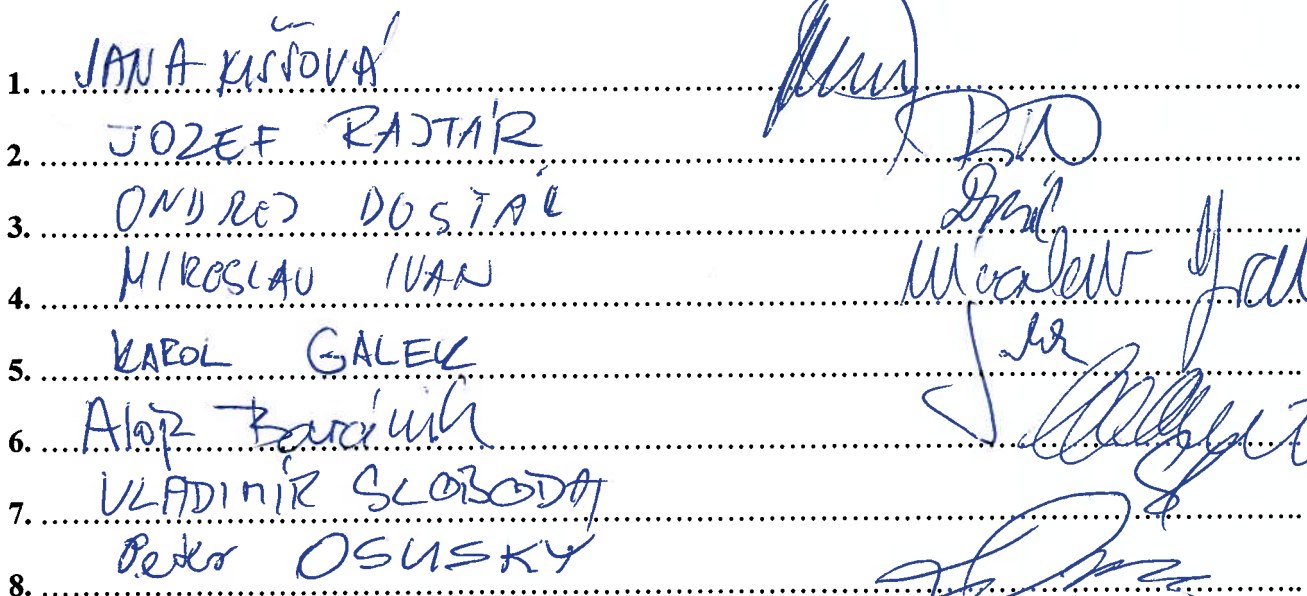 1. JANA KIŠŠOVÁ
2. JOZEF RAJTÁR
3. ONDREJ DOSTÁL
4. MIROSLAV IVAN Miroslav Ivan
5. KAROL GALEK
6. Alojz Baránik
7. VLADIMÍR SLOBODA
8. Peter OSUSKÝ